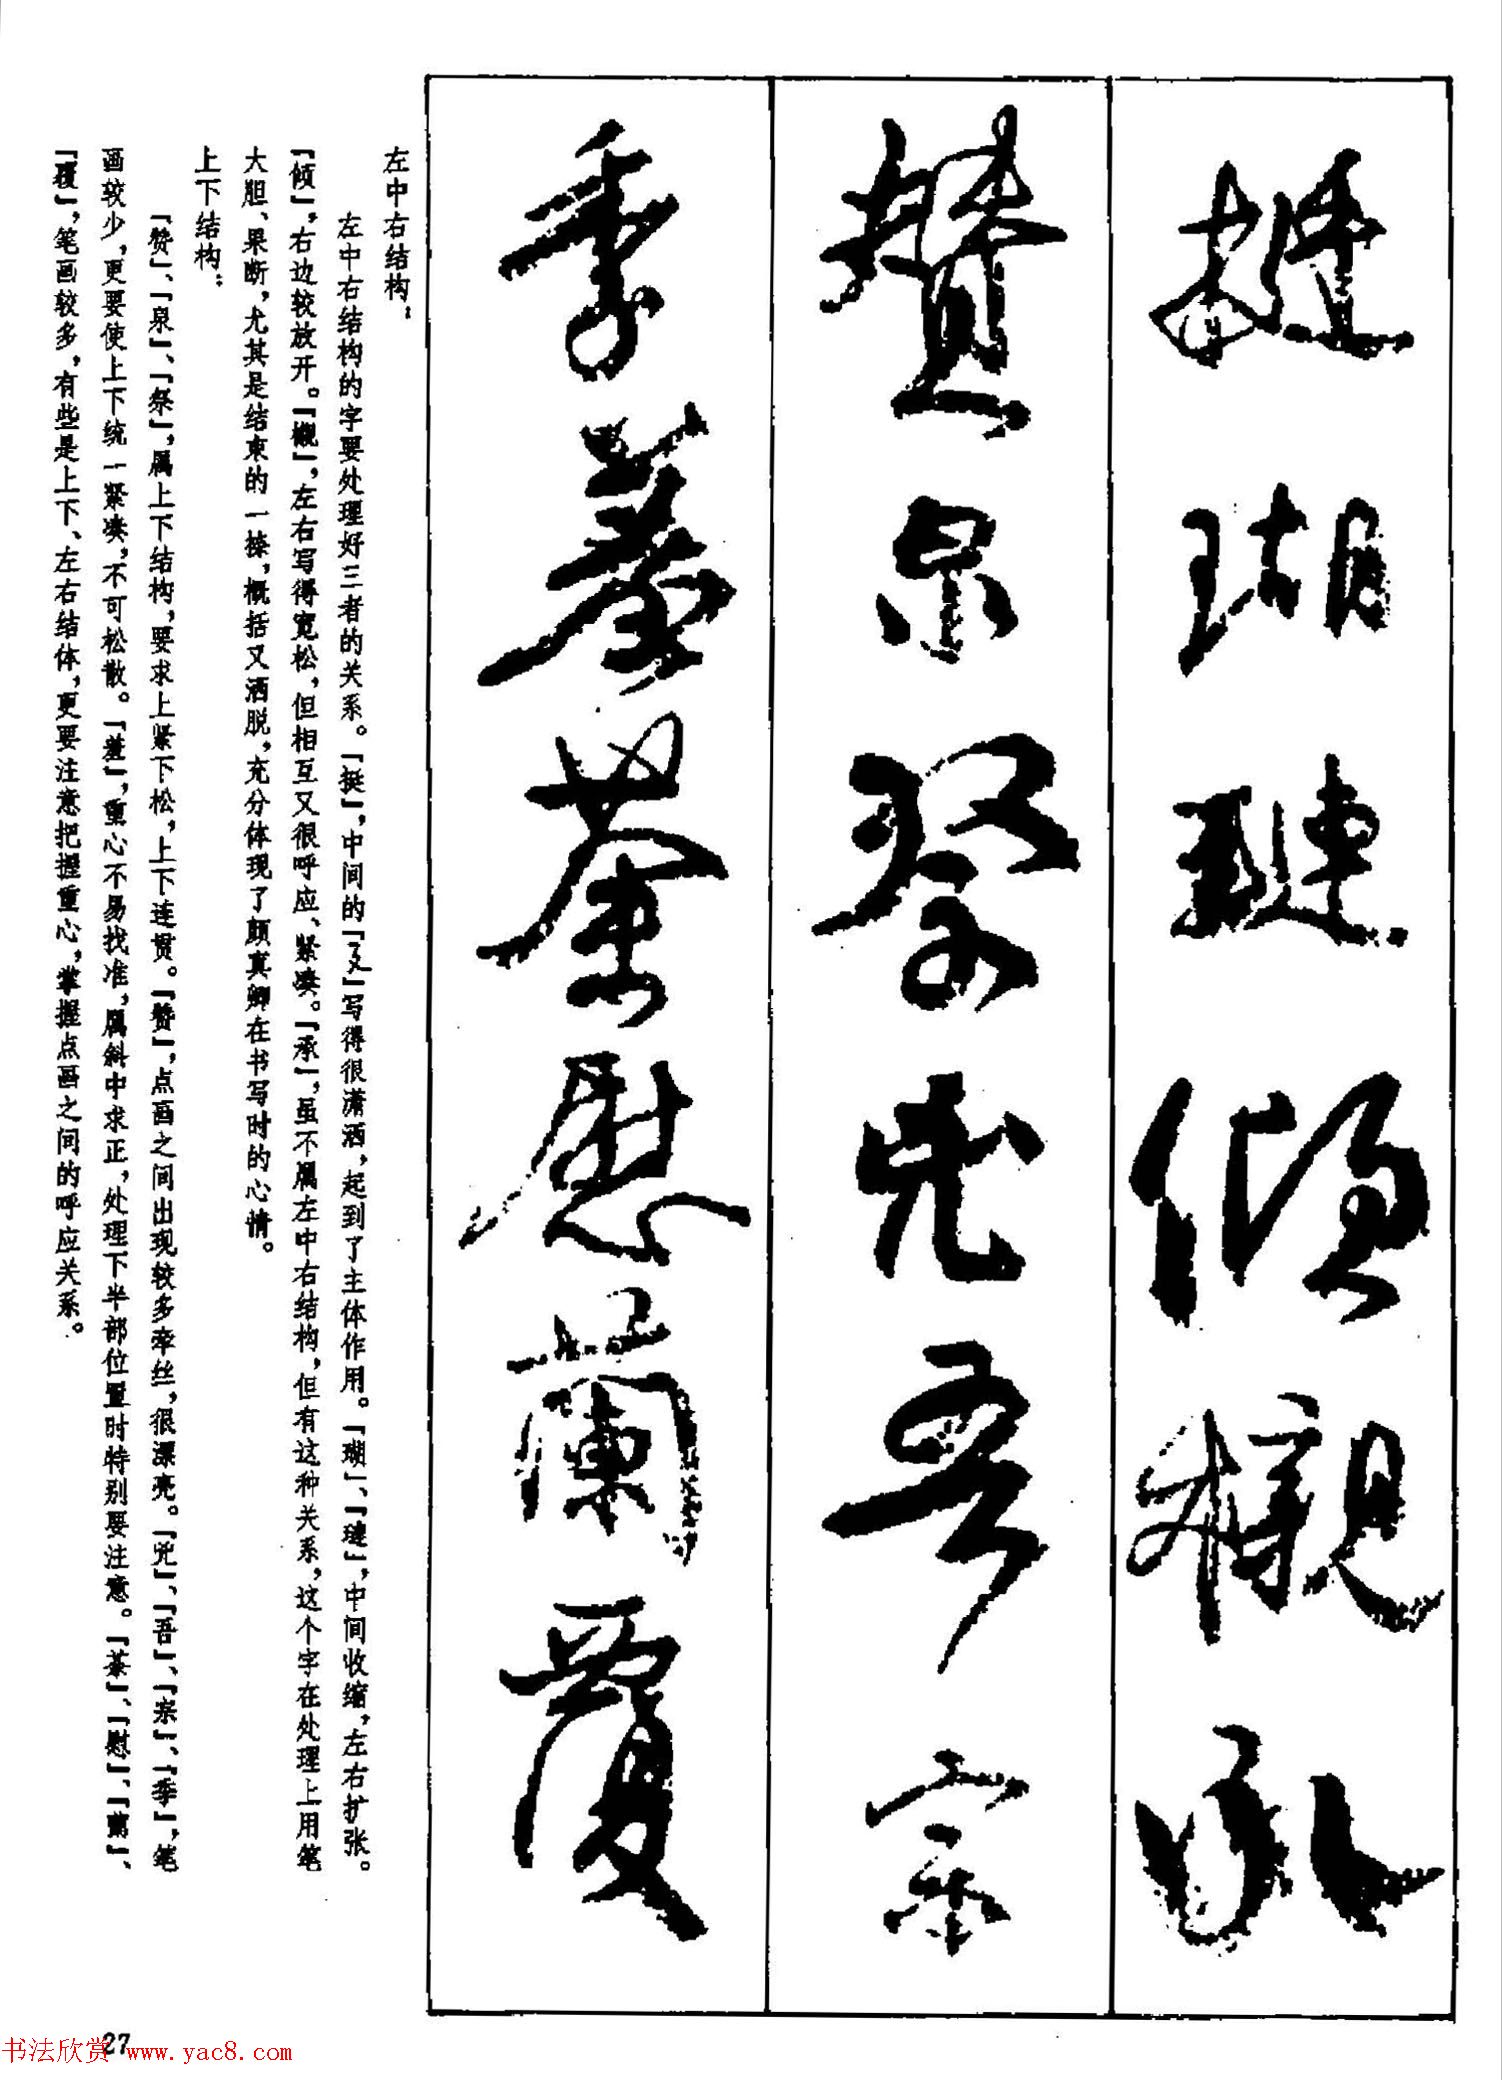 挺瑚琏倾榇承
赞泉祭兕吾宗
季羞荼慰蘭覆
左中右结构：
左中右结构的字要处理好三者的关系。「挺」，中间的「廴」写得很潇洒，起到了主体作用。「瑚」、「琏」，中间收缩，左右扩张。
「倾」，右边较放开。「榇」，左右写得宽松，但相互又很呼应、紧凑。「承」，虽不属左中右结构，但有这种关系，这个字在处理上用笔
大胆、果断，尤其是结束的一捺，概括又洒脱，充分体现了颜真卿在书写时的心情。
上下结构：
「赞」、「泉」、「祭」，属上下结构，要求上紧下松，上下连贯。「赞」，点画之间出现较多牵丝，很漂亮。「兕」、「吾」、「宗」、「季」，笔
画较少，更要使上下统一紧凑，不可松散。「羞」，重心不易找准，属斜中求正，处理下半部位置时特别要注意。「荼」、「慰」、「蘭」、
「覆」，笔画较多，有些是上下、左右结体，更要注意把握重心，掌握点画之间的呼应关系。
27
书法欣赏 www.yac8.com